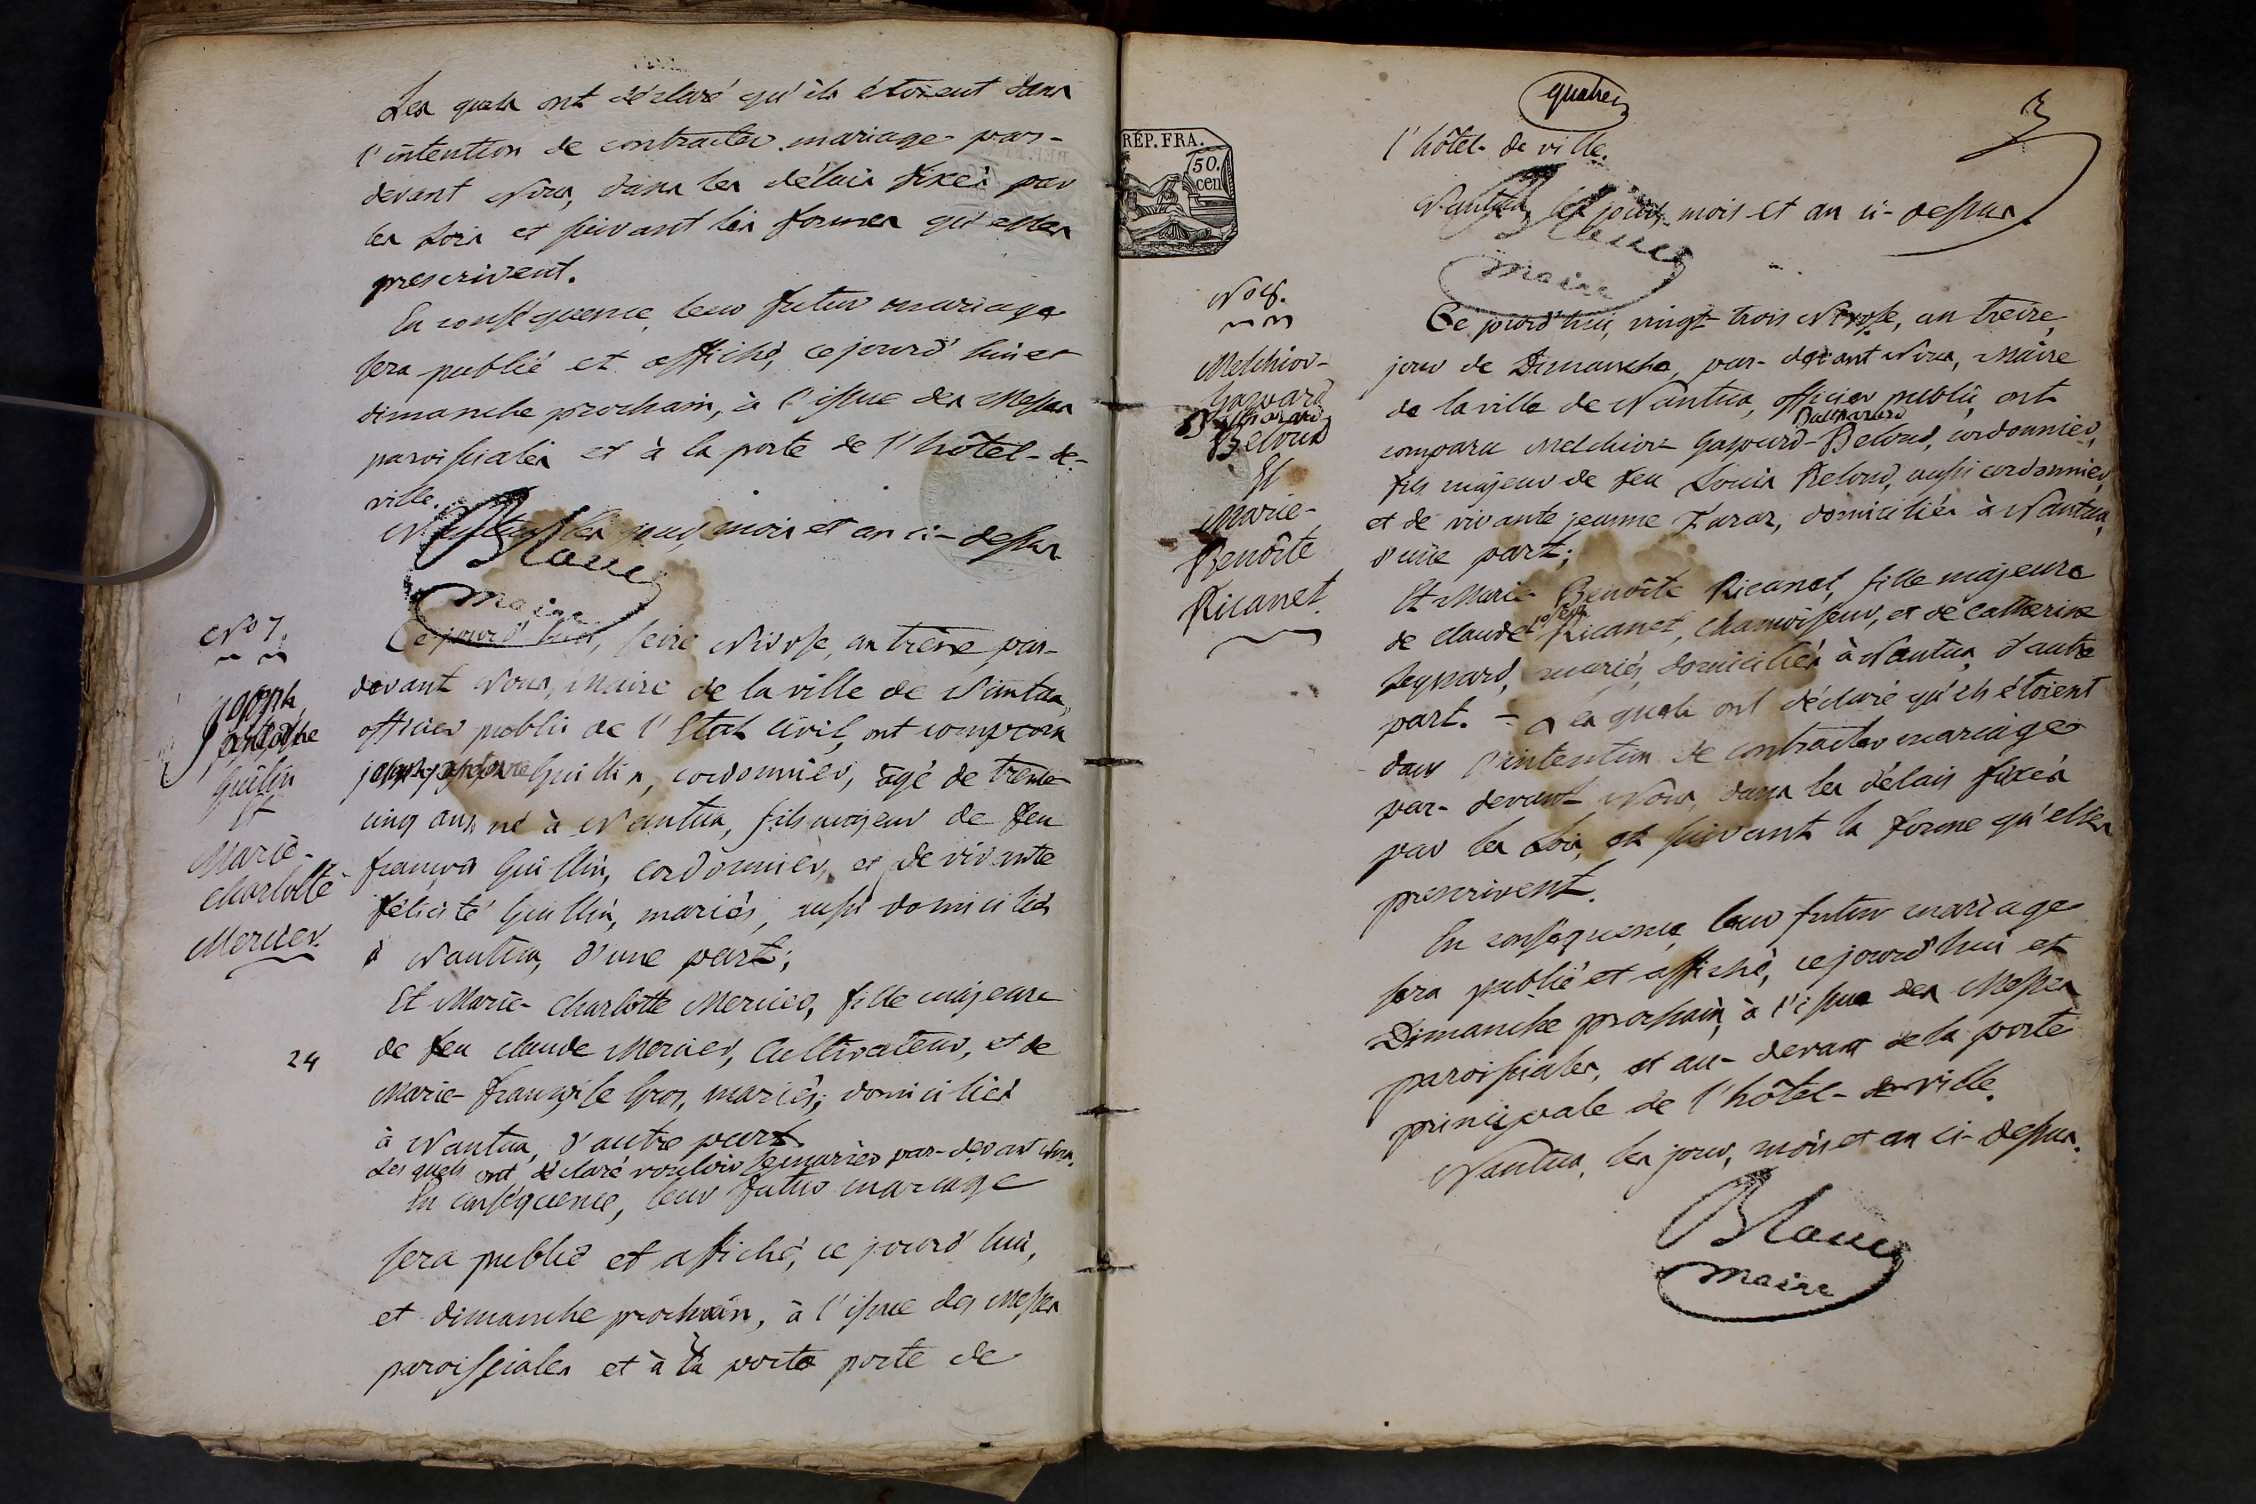 Les quels ont déclaré qu'ils étoient dans
l'intention de contracter mariage par-
devant Nous, dans les délais fixés par
les Lois et suivant les formes qu'elles
prescrivent.
En conséquence, leur futur mariage
sera publié et affiché, cejourd'hui et
dimanche prochain, à l'issue des Messes
paroissiales et à la porte de l'hôtel-de-
ville.
Nantua les jour, mois et an ci-dessus
Blanc
maire
No 7.
Joseph
antoine
Guillin
Et
Marie-
Charlotte
Mercier
Cejourd'hui, seize Nivose, an treize par-
devant Nous, Maire de la ville de Nantua,
officier public de l'Etat civil, ont comparu
joseph antoine Guillin, cordonnier, âgé de trente
cinq ans, né à Nantua, fils majeur de feu
françois Guillin, cordonnier, et de vivante
félicité Guillin, mariés, aussi domiciliés
à Nantua, d'une part;
Et Marie-Charlotte Mercier, fille majeure
24
de feu claude Mercier, Cultivateur, et de
Marie-françoise Gros, mariés, domiciliés
à Nantua, d'autre part.
Les quels ont déclaré vouloir se marier par-devant Nous.
En conséquence, leur futur mariage
sera publié et affiché, ce jourd'hui,
et dimanche prochain, à l'issue des Messes
paroissiales et à la porte porte de
quatre
3
REP. FRA.
50.
cen
l'hôtel-de ville.
Nantua, les jour, mois et an ci-dessus
Blanc
maire
No 8.
Melchior-
Gaspard
Balthazard
Beloud
Et
Marie-
Benoîte
Ricanet
Ce jourd'hui, vingt-trois Nivose, an treize,
jour de Dimanche, par-devant Nous, Maire
de la ville de Nantua, officier public, ont
Balthazard
comparu Melchior-Gaspard-Beloud, cordonnier,
fils majeur de feu Louis Beloud, aussi cordonnier,
et de vivante jeanne, domiciliés à Nantua,
d'une part;
Et Marie-Benoîte Ricanet, fille majeure
de claude Ricanet, chamoiseur, et de catherine
mariés, domiciliés à Nantua, d'autre
part. - Les quels ont déclaré qu'ils étoient
dans l'intention de contracter mariage
par-devant Nous, dans les délais fixés
par les Lois, et suivant la forme qu'elles
prescrivent.
En conséquence, leur futur mariage
sera publié et affiché, cejourd'hui et
Dimanche prochain, à l'issue des Messes
paroissiales, et au-devant de la porte
principale de l'hôtel-de ville.
Nantua, les jour, mois et an ci-dessus.
Blanc
maire